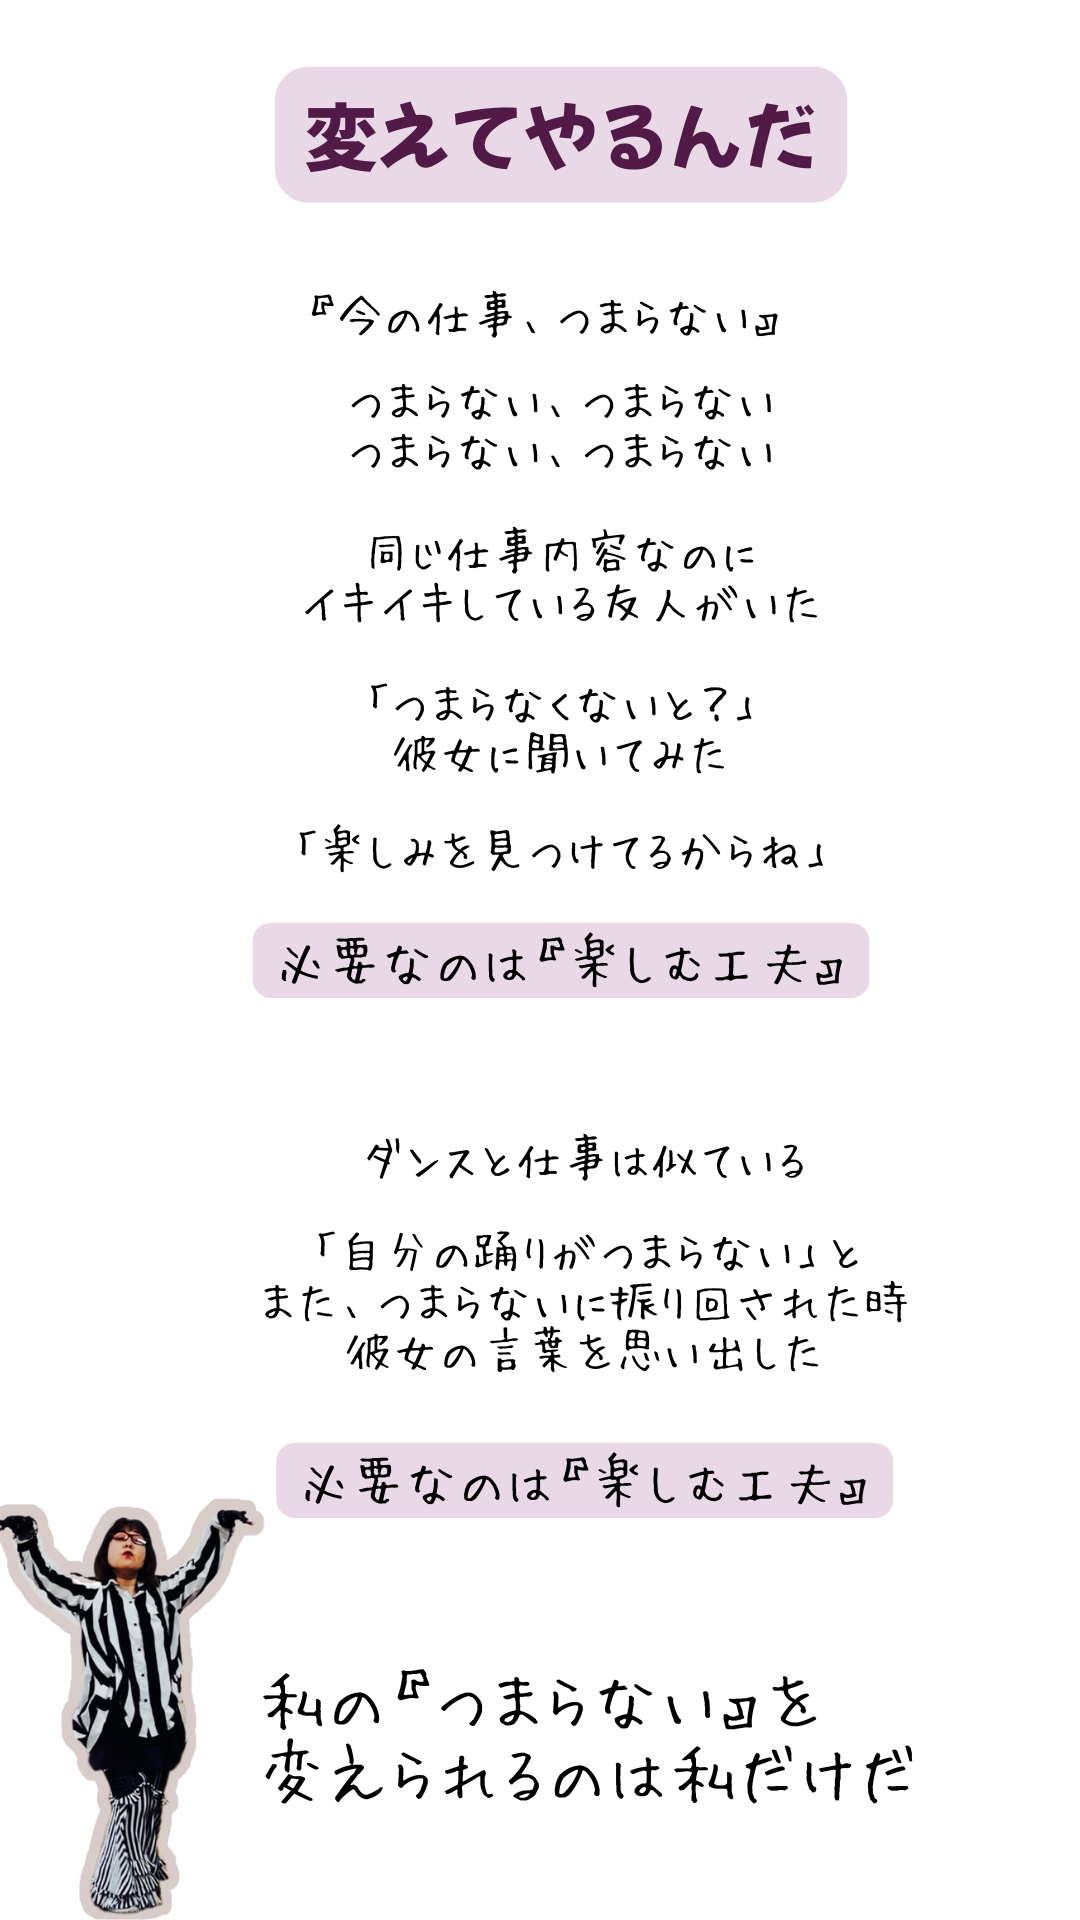 変えてやるんだ
『今の仕事、つまらない』
つまらない、つまらない
つまらない、つまらない
同じ仕事内容なのに
イキイキしている友人がいた
「つまらなくないと？」
彼女に聞いてみた
「楽しみを見つけてるからね」
必要なのは『楽しむ工夫』
ダンスと仕事は似ている
「自分の踊りがつまらない」と
また、つまらないに振り回された時
彼女の言葉を思い出した
必要なのは『楽しむ工夫』
私の『つまらない』を
変えられるのは私だけだ